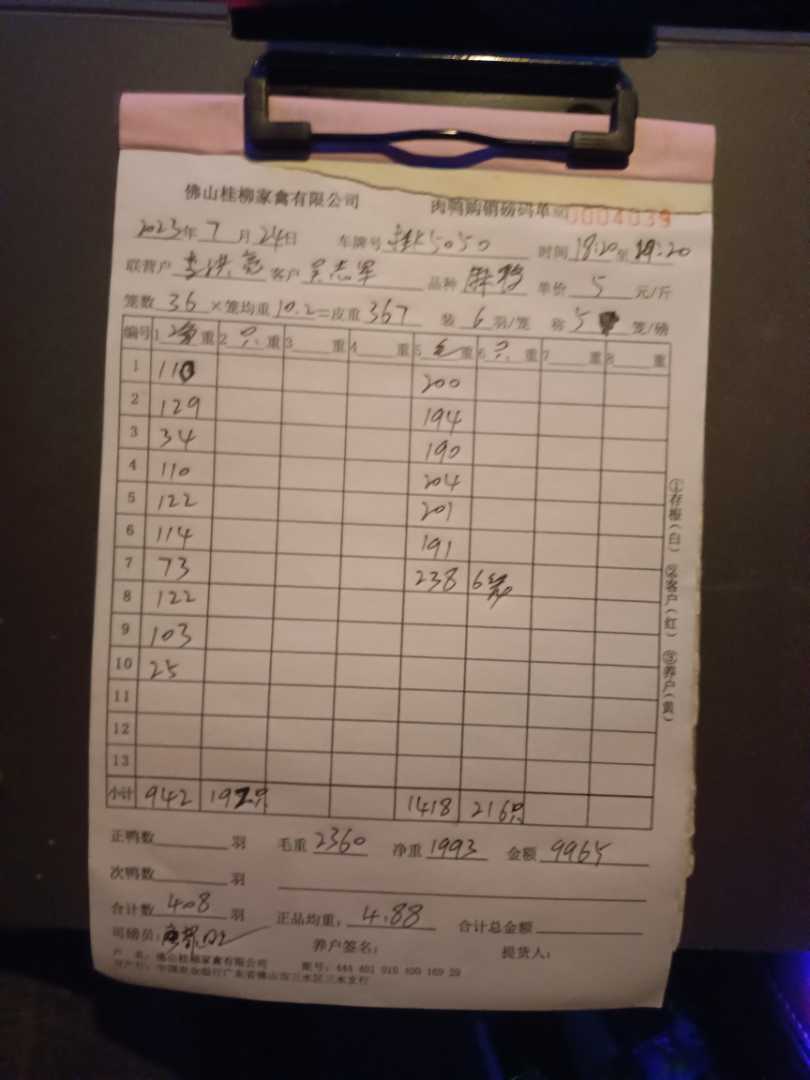 佛山桂柳家禽有限公司 肉鸭购销磅码单 0004039
2023年 7 月 24日 车牌号 5050 时间 18:20至 19:20
联营户 李洪亮 客户 吴志军 品种 麻鸭 单价 5 元/斤
笼数 36 ×笼均重 10.2=皮重 367 装 6 羽/笼 称 5 笼/磅
编号 1 净 重 2 只 重 3 重 4 重 5 毛 重 6 只 重 7 重 8 重
1 110 200
2 129 194
3 34 190
4 110 204
5 122 201
6 114 191
7 73 238 6笼
8 122
9 103
10 25
11
12
13
小计 942 192只 1418 216只
正鸭数 羽 毛重 2360 净重 1993 金额 9965
次鸭数 羽
合计数 408 羽 正品均重: 4.88 合计总金额
司磅员: 养户签名: 提货人:
户 名: 佛山桂柳家禽有限公司 账号: 444 601 010 400 169 29
开户行: 中国农业银行广东省佛山市三水区三水支行
①存根(白) ②客户(红) ③养户(黄)